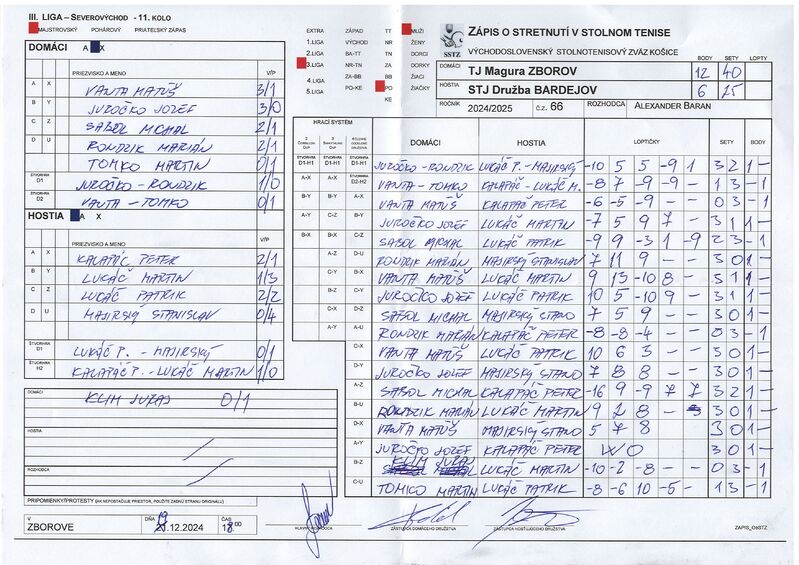 III. LIGA – SEVEROVÝCHOD - 11. KOLO
MAJSTROVSKÝ POHÁROVÝ PRIATEĽSKÝ ZÁPAS
EXTRA ZÁPAD TT MUŽI
1.LIGA VÝCHOD NR ŽENY
2.LIGA BA-TT TN DORKY
3.LIGA NR-TN ZA DORKY
4.LIGA ZA-BB BB ŽIACI
5.LIGA PO-KE PO ŽIAČKY
KE
SSTZ
ZÁPIS O STRETNUTÍ V STOLNOM TENISE
VÝCHODOSLOVENSKÝ STOLNOTENISOVÝ ZVÄZ KOŠICE
BODY SETY LOPTY
DOMÁCI TJ Magura ZBOROV 12 40
HOSTIA STJ Družba BARDEJOV 6 25
ROČNÍK 2024/2025 č.z. 66 ROZHODCA ALEXANDER BARAN
DOMÁCI A X
PRIEZVISKO A MENO V/P
A X VANTA MATÚŠ 3/1
B Y JUROČKO JOZEF 3/0
C Z SABOL MICHAL 2/1
D U RONDZIK MARIÁN 2/1
TOMKO MARTIN 0/1
ŠTVORHRA D1 JUROČKO - RONDZIK 1/0
ŠTVORHRA D2 VANTA - TOMKO 0/1
HOSTIA A X
PRIEZVISKO A MENO V/P
A X KALAPÁČ PETER 2/1
B Y LUKÁČ MARTIN 1/3
C Z LUKÁČ PATRIK 2/2
D U MAJIRSKÝ STANISLAV 0/4
ŠTVORHRA D1 LUKÁČ P. - MAJIRSKÝ 0/1
ŠTVORHRA H2 KALAPÁČ P. - LUKÁČ MARTIN 1/0
DOMÁCI
KLIM JURAJ 0/1
HOSTIA
ROZHODCA
PRIPOMIENKY/PROTESTY (AK NEPOSTAČUJE PRIESTOR, POUŽITE ZADNÚ STRANU ORIGINÁLU)
HRACÍ SYSTÉM DOMÁCI HOSTIA LOPTIČKY SETY BODY
ŠTVORHRA D1-H1 ŠTVORHRA D1-H1 ŠTVORHRA D1-H1 JUROČKO - RONDZIK LUKÁČ P. - MAJIRSKÝ -10 5 5 -9 1 3 2 1 -
A-X A-X ŠTVORHRA D2-H2 VANTA - TOMKO KALAPÁČ - LUKÁČ M. -8 7 -9 -9 - 1 3 - 1
B-Y B-Y A-X VANTA MATÚŠ KALAPÁČ PETER -6 -5 -9 - - 0 3 - 1
A-Y C-Z B-Y JUROČKO JOZEF LUKÁČ MARTIN -7 5 9 7 - 3 1 1 -
B-X B-X C-Z SABOL MICHAL LUKÁČ PATRIK -9 9 -3 1 -9 2 3 - 1
A-Z D-U RONDZIK MARIÁN MAJIRSKÝ STANISLAV 7 11 9 - - 3 0 1 -
C-Y B-X VANTA MATÚŠ LUKÁČ MARTIN 9 13 -10 8 - 3 1 1 -
B-Z C-Y JUROČKO JOZEF LUKÁČ PATRIK 10 5 -10 9 - 3 1 1 -
C-X D-Z SABOL MICHAL MAJIRSKÝ STANO 7 5 9 - - 3 0 1 -
A-Y A-U RONDZIK MARIÁN KALAPÁČ PETER -8 -8 -4 - - 0 3 - 1
C-X VANTA MATÚŠ LUKÁČ PATRIK 10 6 3 - - 3 0 1 -
D-Y JUROČKO JOZEF MAJIRSKÝ STANO 7 8 8 - - 3 0 1 -
A-Z SABOL MICHAL KALAPÁČ PETER -16 9 -9 7 7 3 2 1 -
B-U RONDZIK MARIÁN LUKÁČ MARTIN 9 2 8 - 3 0 1 -
D-X VANTA MATÚŠ MAJIRSKÝ STANO 5 7 8 3 0 1 -
A-Y JUROČKO JOZEF KALAPÁČ PETER WO 3 0 1 -
B-Z KLIM JURAJ LUKÁČ MARTIN -10 -2 -8 - - 0 3 - 1
C-U TOMKO MARTIN LUKÁČ PATRIK -8 -6 10 -5 - 1 3 - 1
V ZBOROVE DŇA 12.2024 ČAS 18.00
HLAVNÝ ROZHODCA ZÁSTUPCA DOMÁCEHO DRUŽSTVA ZÁSTUPCA HOSŤUJÚCEHO DRUŽSTVA ZAPIS_O6STZ